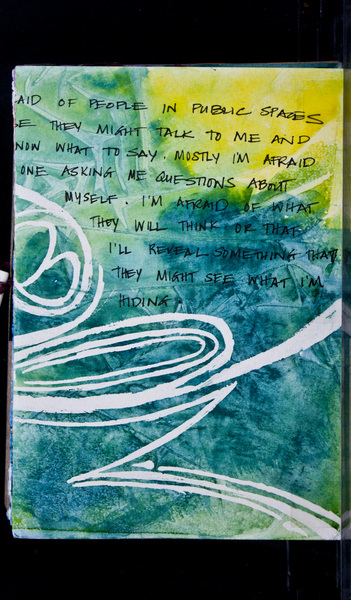 AID OF PEOPLE IN PUBLIC SPACES
SE THEY MIGHT TALK TO ME AND
NOW WHAT TO SAY. MOSTLY I'M AFRAID
ONE ASKING ME QUESTIONS ABOUT
MYSELF. I'M AFRAID OF WHAT
THEY WILL THINK OR THAT
I'LL REVEAL SOMETHING THAT
THEY MIGHT SEE WHAT I'M
HIDING.